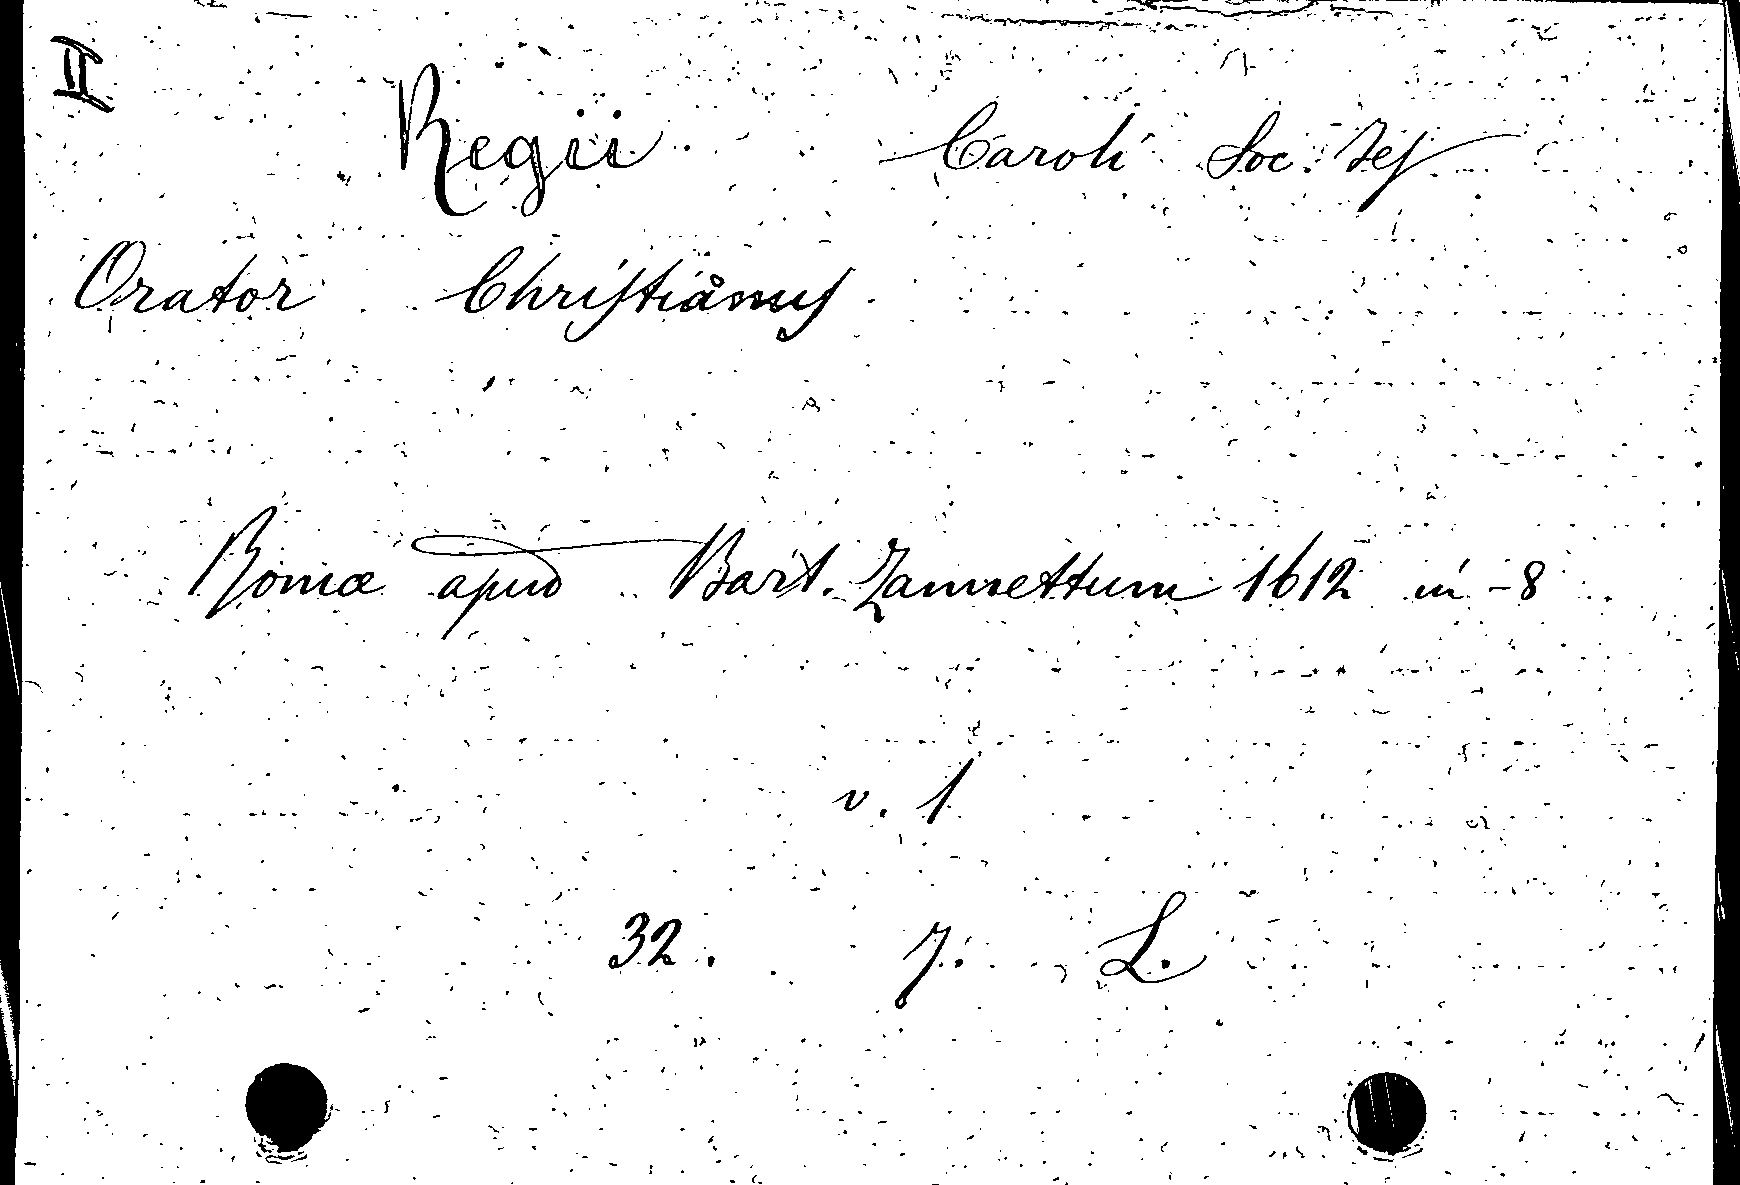 II
Regii Caroli Soc. Jes
Orator Christianus
Romæ apud Bart. Zannettum 1612 in-8
v. 1
32. 7. L.